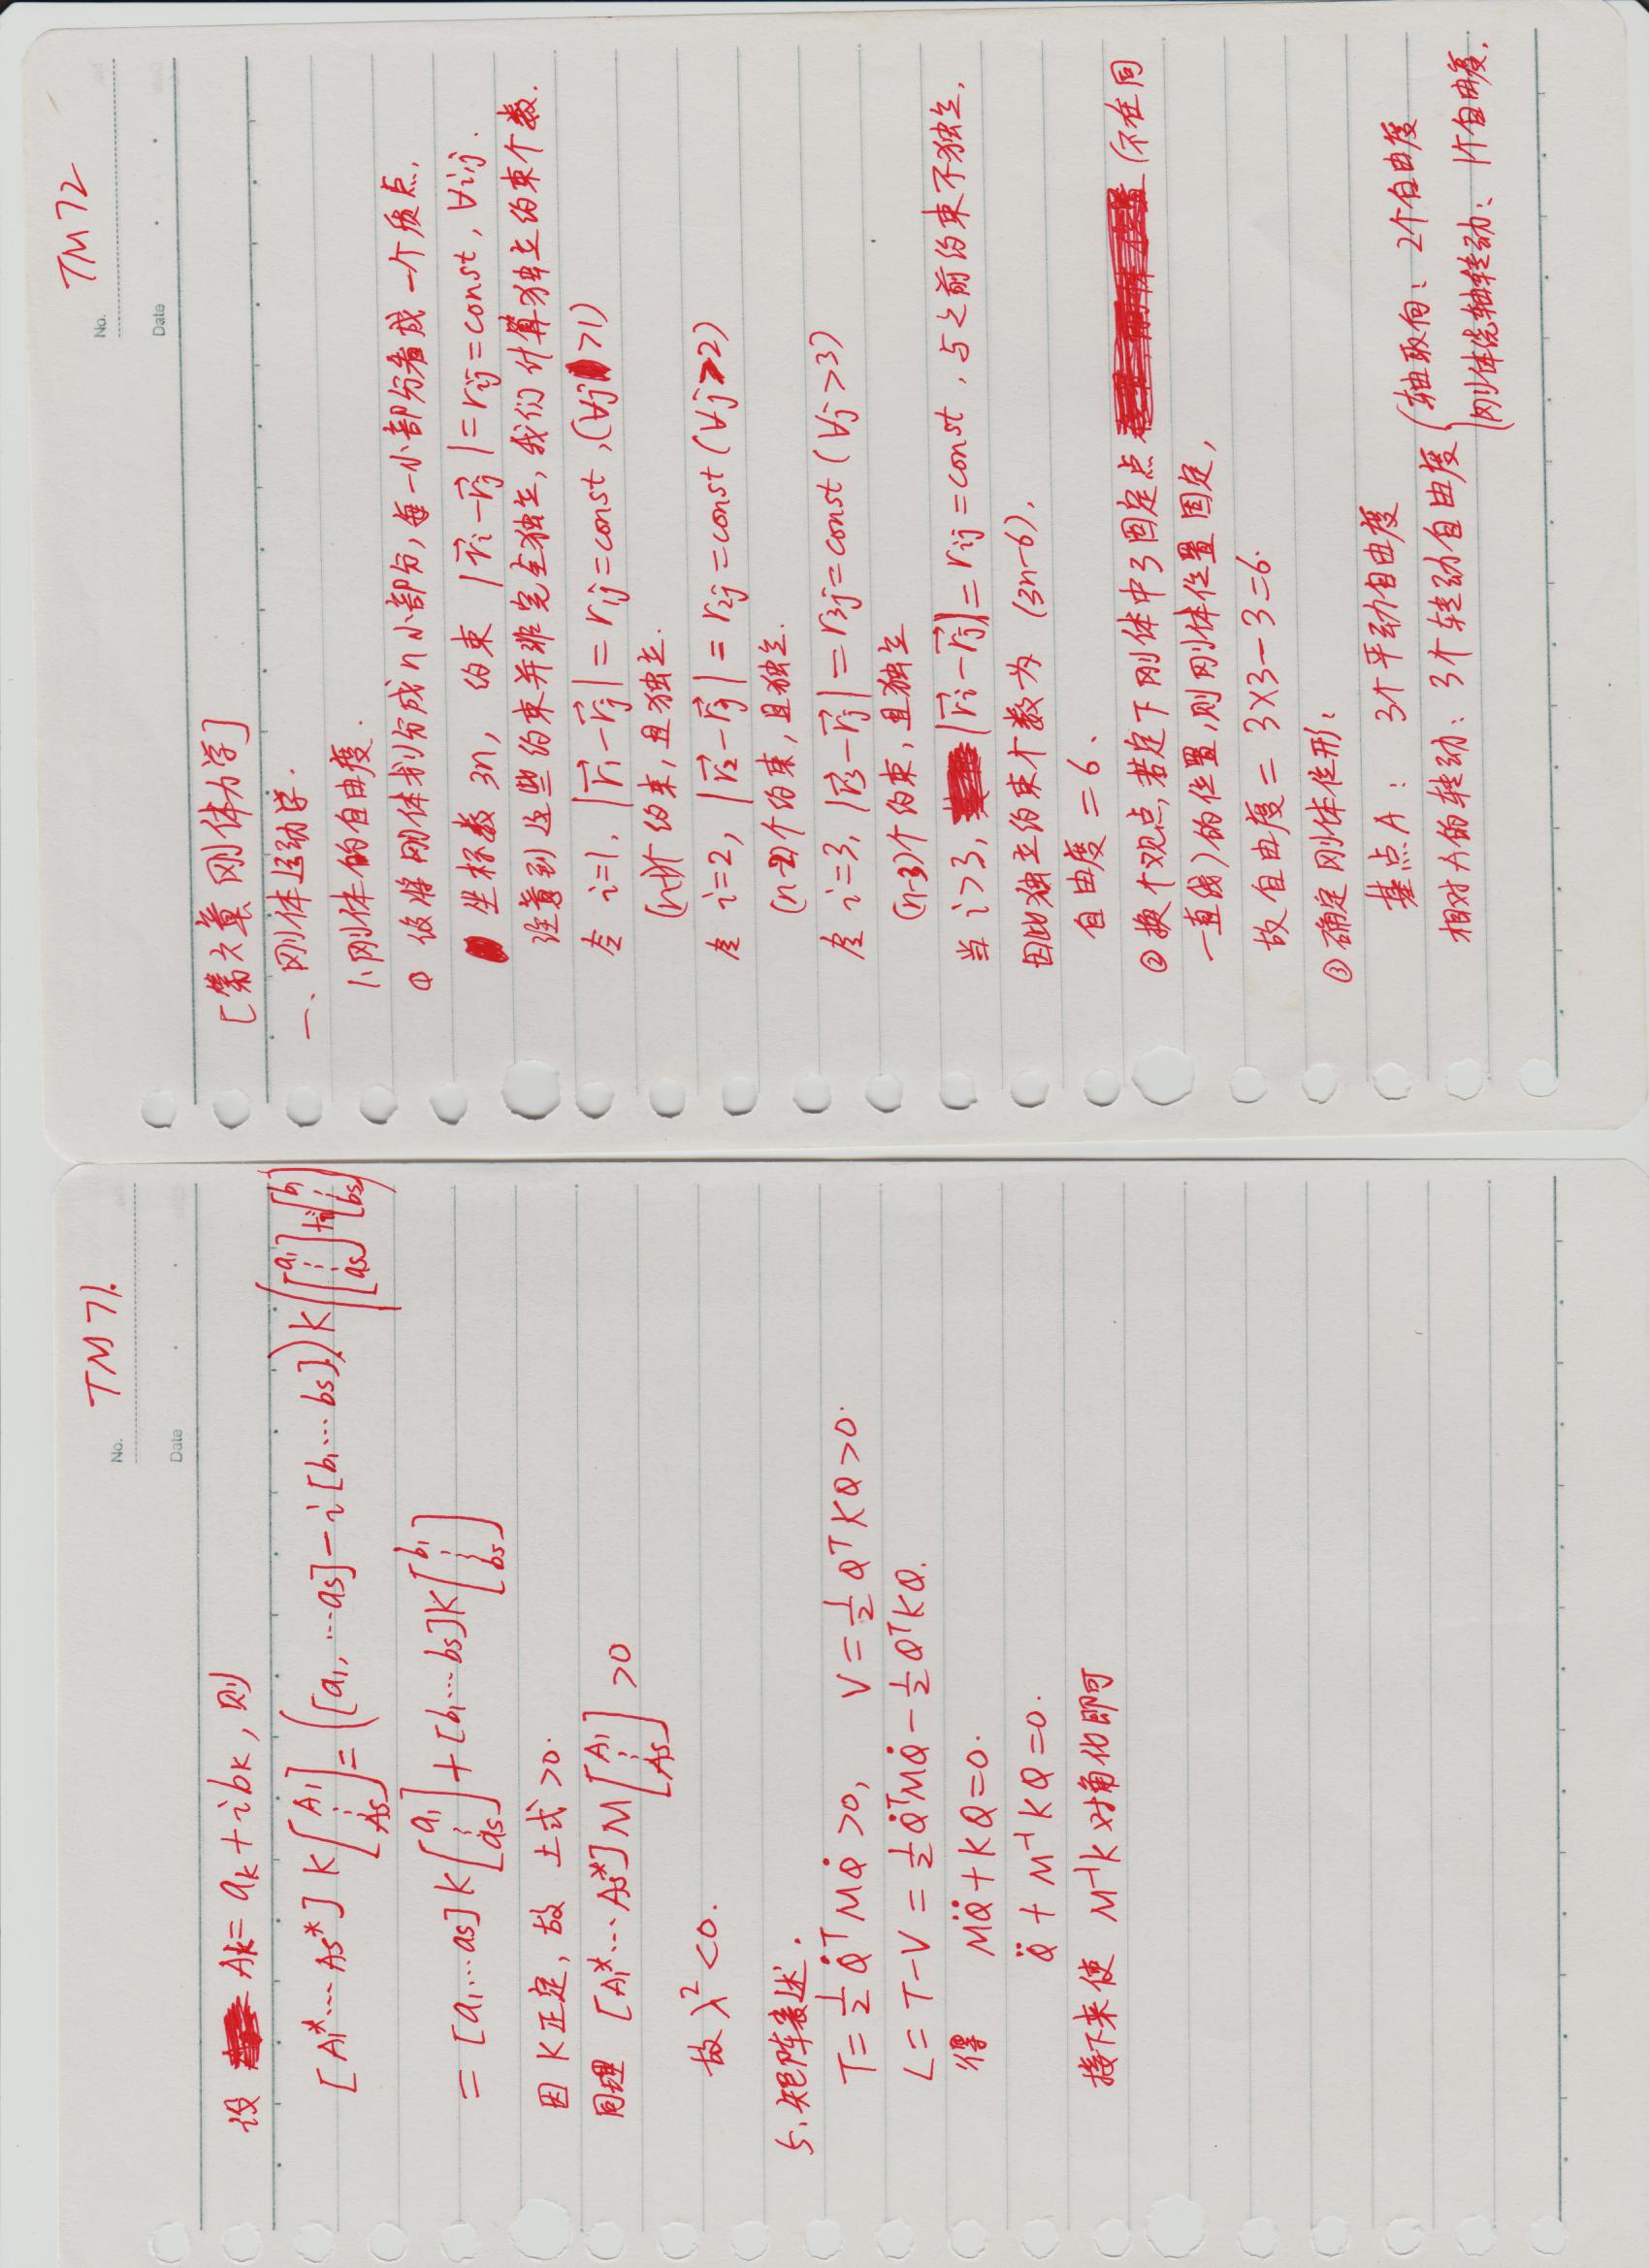 No. TM71.
Date
设 Ak = ak + i bk, 则
[A1* ⋯ As*] K [A1 ⋮ As] = ([a1, ⋯ as] − i [b1 ⋯ bs]) K ([a1 ⋮ as] + i [b1 ⋮ bs])
= [a1 ⋯ as] K [a1 ⋮ as] + [b1 ⋯ bs] K [b1 ⋮ bs]
因 K 正定, 故 上式 > 0.
同理 [A1* ⋯ As*] M [A1 ⋮ As] > 0
故 λ² < 0.
5. 矩阵表述.
T = 1/2 Q̇ᵀ M Q̇ > 0, V = 1/2 Qᵀ K Q > 0.
L = T − V = 1/2 Q̇ᵀ M Q̇ − 1/2 Qᵀ K Q.
得 M Q̈ + K Q = 0.
Q̈ + M⁻¹ K Q = 0.
接下来使 M⁻¹K 对角化即可
No. TM72
Date
[第六章 刚体力学]
一、刚体运动学.
1. 刚体的自由度.
① 设将刚体划分成 n 小部分, 每一小部分看成一个质点,
坐标数 3n, 约束 |r⃗i − r⃗j| = rij = const, ∀i,j.
注意到这些约束并非完全独立, 我们计算独立约束个数.
令 i=1, |r⃗1 − r⃗j| = r1j = const, (∀j > 1)
(n-1)个约束, 且独立.
令 i=2, |r⃗2 − r⃗j| = r2j = const (∀j > 2)
(n-2)个约束, 且独立.
令 i=3, |r⃗3 − r⃗j| = r3j = const (∀j > 3)
(n-3)个约束, 且独立
当 i>3, |r⃗i − r⃗j| = rij = const, 与之前约束不独立,
因此独立约束个数为 (3n-6),
自由度 = 6.
② 换个观点, 若定下刚体中3固定点 (不在同
一直线) 的位置, 则刚体位置固定,
故自由度 = 3×3 − 3 = 6.
③ 确定刚体位形:
基点A: 3个平动自由度
相对A的转动: 3个转动自由度 { 轴取向: 2个自由度
刚体绕轴转动: 1个自由度.